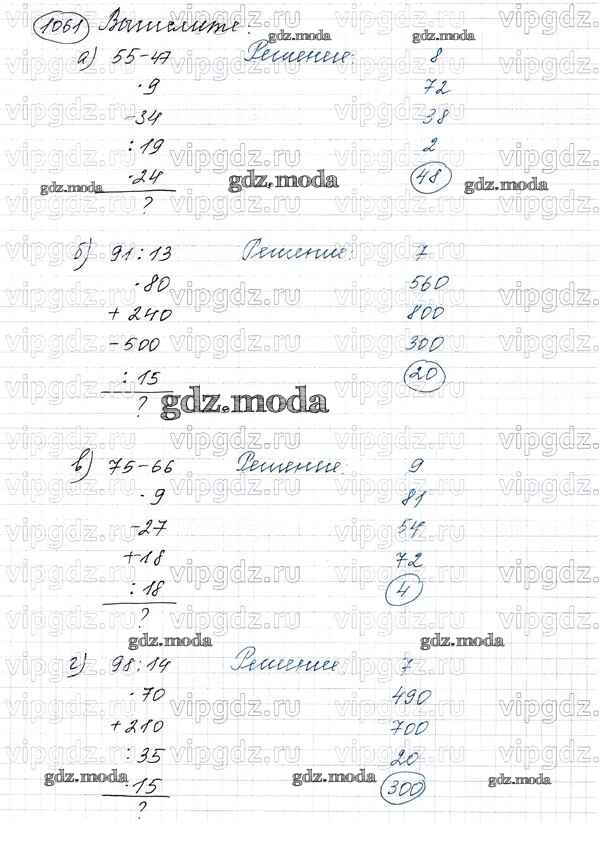 1061 Вычислите:
а) 55-47 Решение: 8
·9 72
-34 38
:19 2
·24 48
?
б) 91:13 Решение: 7
·80 560
+240 800
-500 300
:15 20
?
в) 75-66 Решение: 9
·9 81
-27 54
+18 72
:18 4
?
г) 98:14 Решение 7
·70 490
+210 700
:35 20
·15 300
?
gdz.moda
vipgdz.ru